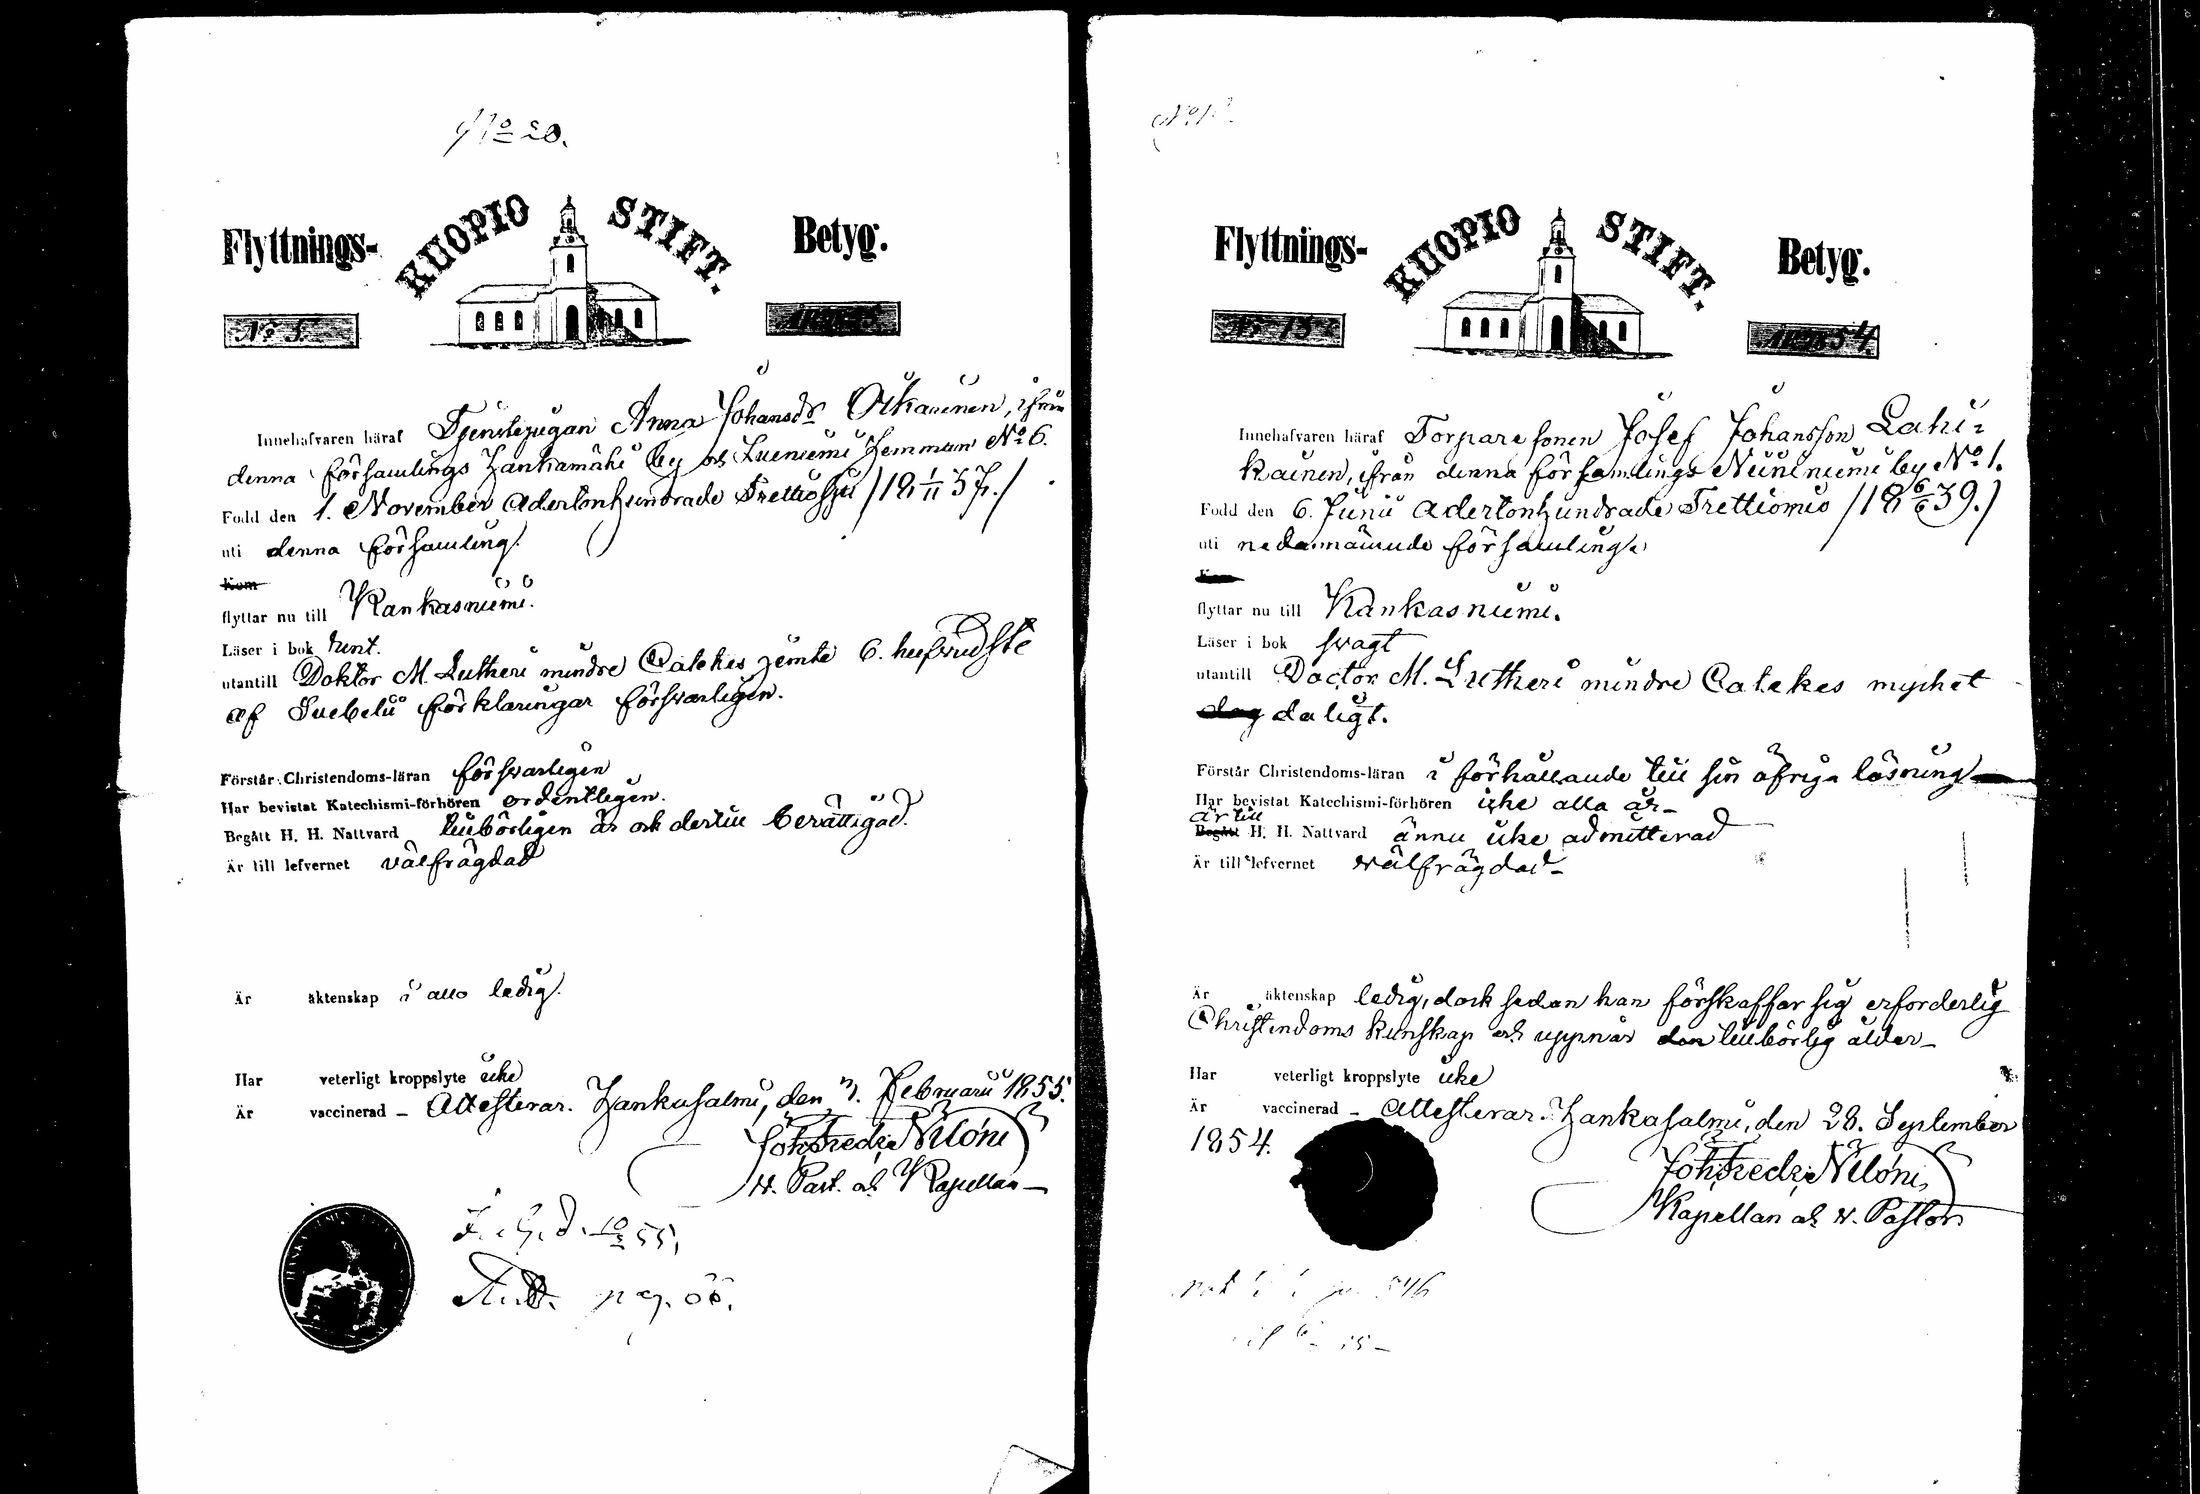 No 20.
Flyttnings- KUOPIO STIFT. Betyg.
No 5.
Innehafvaren häraf Tjenstepigan Anna Johansdr Oikarinen, ifrån
denna församlings Hankamäki by och Lieniemi hemman No 6.
Född den 1. November Adertonhundrade Trettiosju /18 1/11 37./
uti denna församling.
Kom
flyttar nu till Kankasniemi.
Läser i bok rent.
utantill Doktor M. Lutheri mindre Catekes jemte 6. hufvudste
af Svebelii förklaringar försvarligen.
Förstår Christendoms-läran försvarligen
Har bevistat Katechismi-förhören ordentligen.
Begått H. H. Nattvard tillbörligen är och dertill berättigad.
Är till lefvernet välfrägdad
Är äktenskap i allo ledig.
Har veterligt kroppslyte icke
Är vaccinerad – Attesterar. Hankasalmi, den 7. Februarii 1855.
Joh. Fredr. Nilóni
v. Past. och Kapellan
55.
pag.
No
Flyttnings- KUOPIO STIFT. Betyg.
No 18 År 1854.
Innehafvaren häraf Torparesonen Josef Johansson Lahi=
kainen, ifrån denna församlings Niininiemi by No 1.
Född den 6. Junii Adertonhundrade Trettionio /18 6/6 39./
uti nedannämnde församling
Kom
flyttar nu till Kankasniemi.
Läser i bok svagt
utantill Doctor M. Lutheri mindre Catekes mycket
dåligt.
Förstår Christendoms-läran i förhållande till sin öfriga läsning
Har bevistat Katechismi-förhören icke alla år –
är till
Begått H. H. Nattvard ännu icke admitterad
Är till lefvernet välfrägdad –
Är äktenskap ledig, dock sedan han förskaffar sig erforderlig
Christendoms kunskap och uppnår den tillbörlig ålder –
Har veterligt kroppslyte icke
Är vaccinerad – Attesterar. Hankasalmi, den 28. September
1854.
Joh. Fredr. Nilóni,
Kapellan och v. Pastor